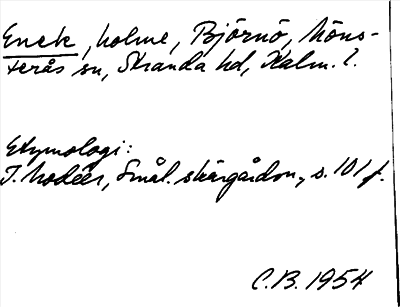 Enek, holme, Björnö, Möns-
terås sn, Stranda hd, Kalm. l.
Etymologi:
I. Modéer, Smål. skärgården, s. 101 f.
C.B. 1954